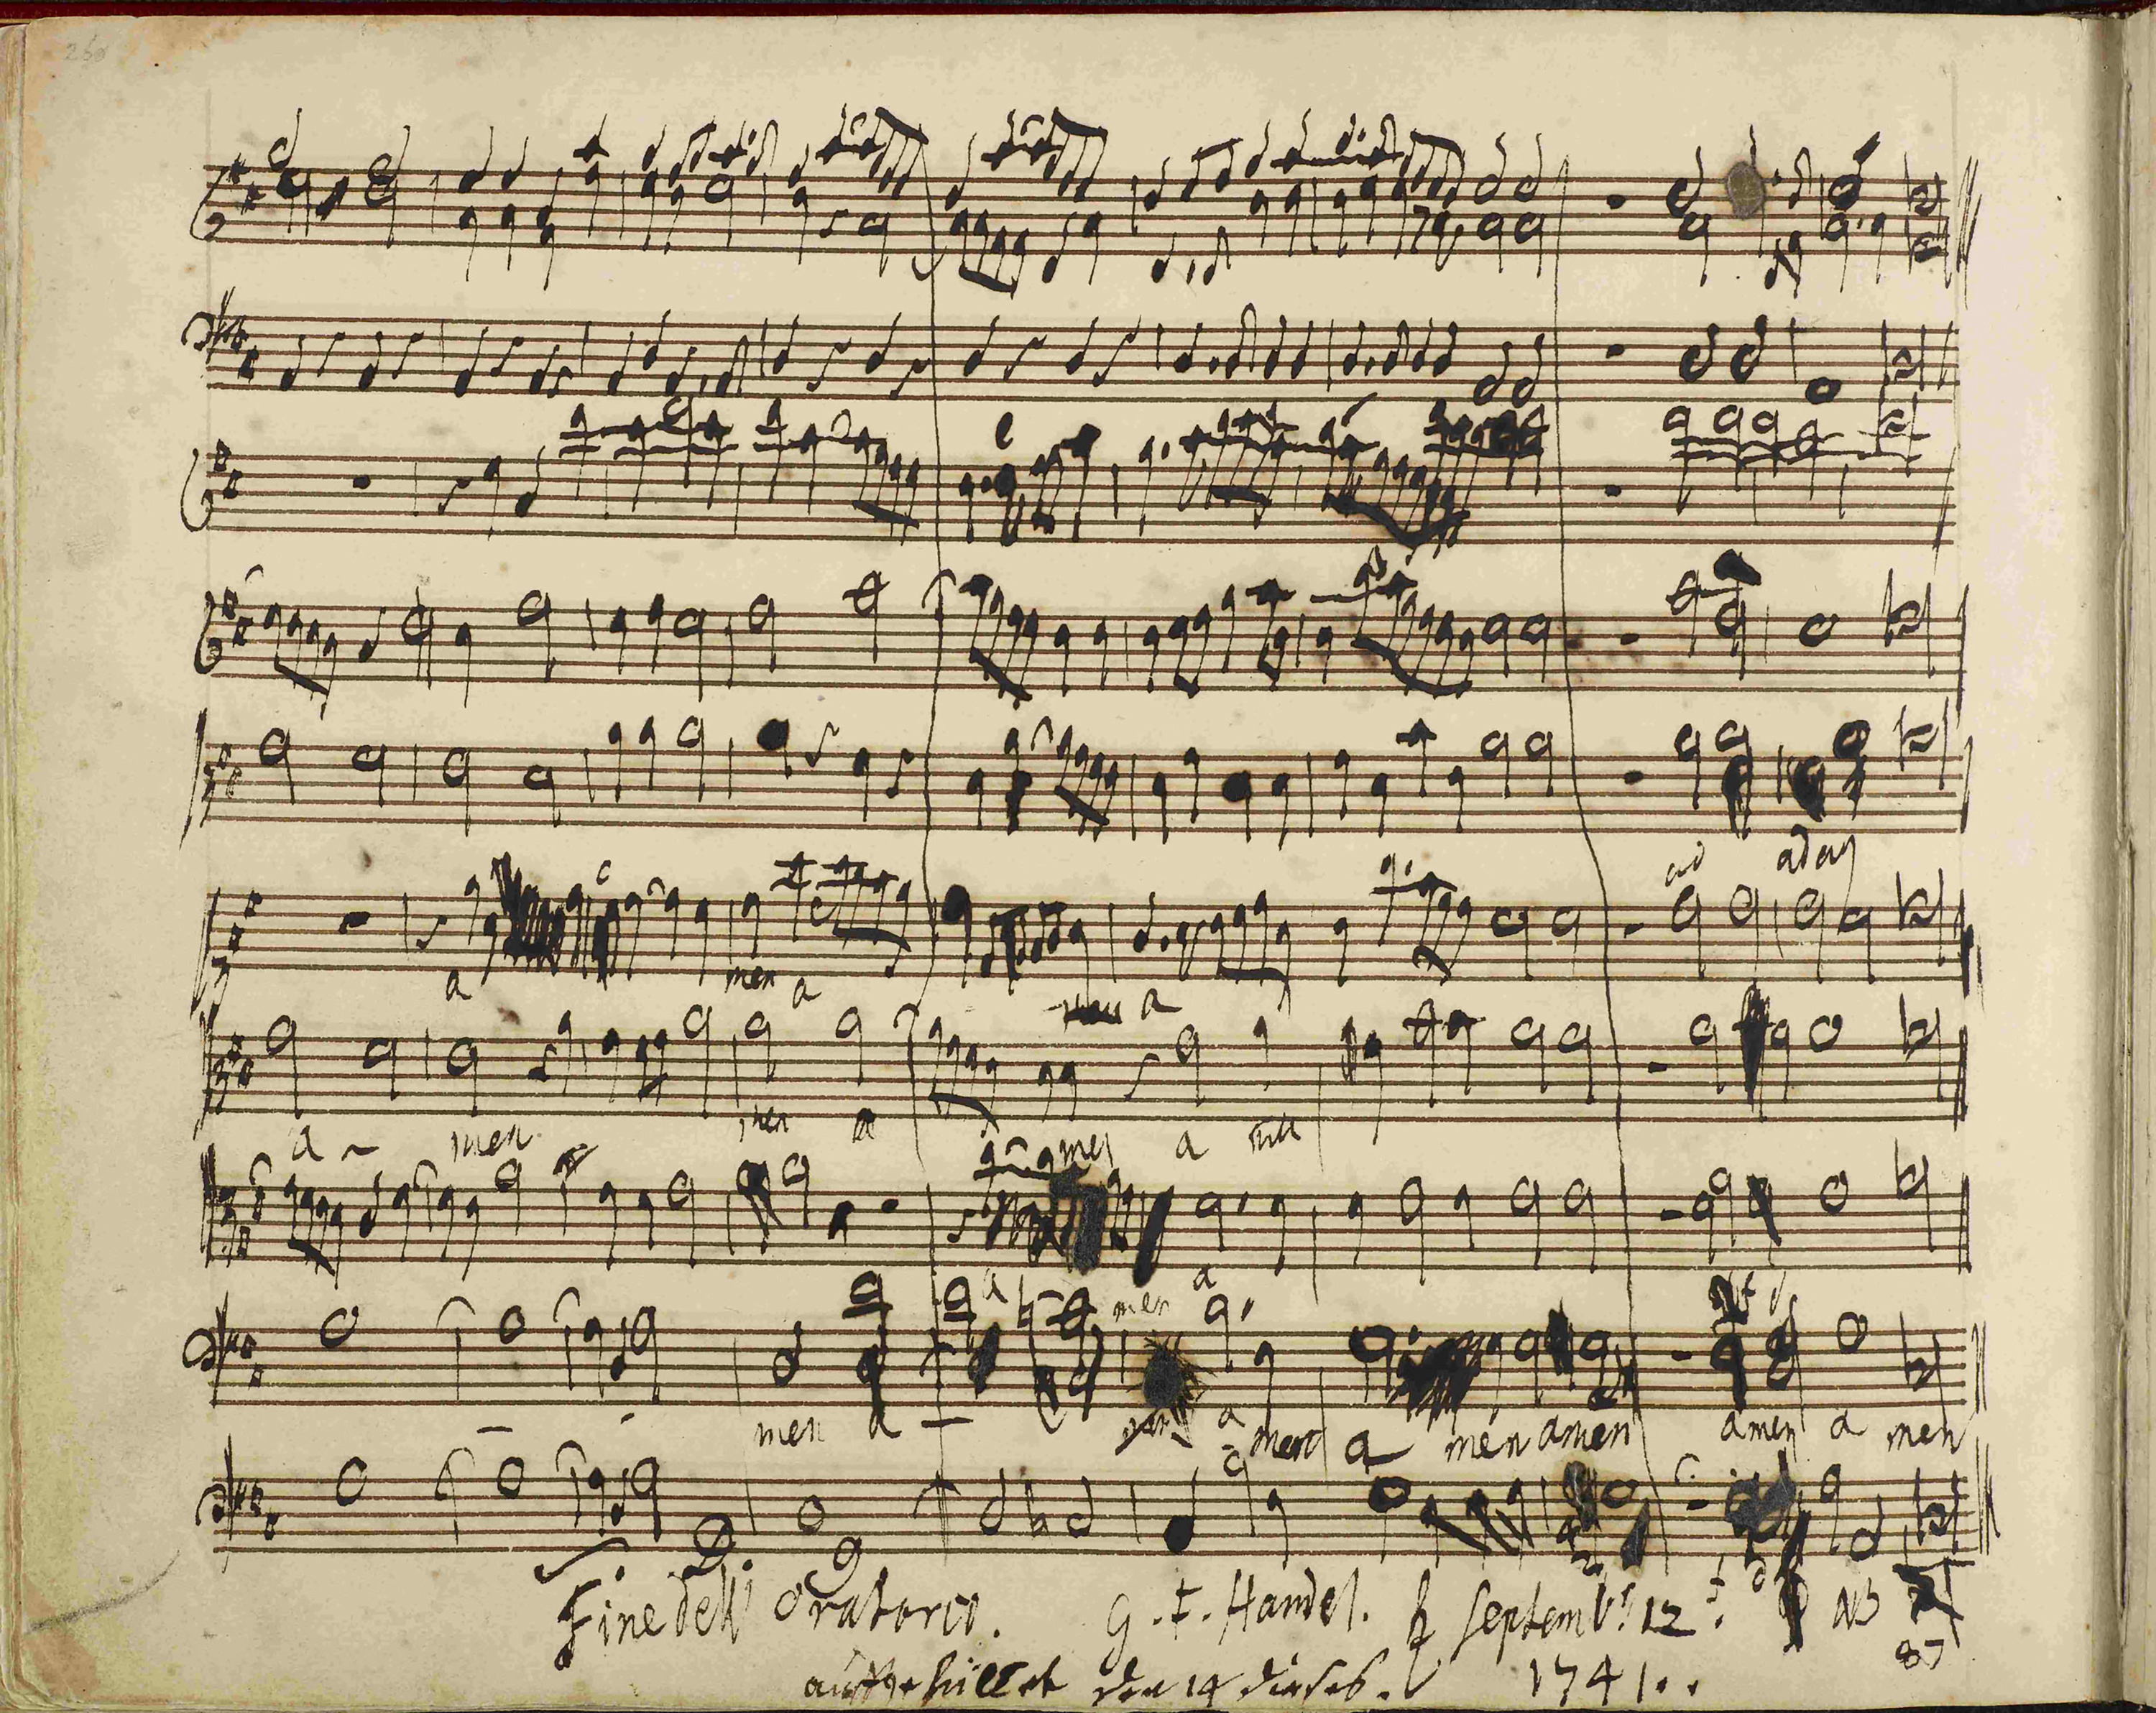 260
ad adag
a men a men a
a men men a men a men
a men a
men a men a men a men amen amen a men
Fine dell' Oratorio. G. F. Handel. ♄ Septembr. 12. NB
87
ausgefüllet den 14 dieses. 1741..